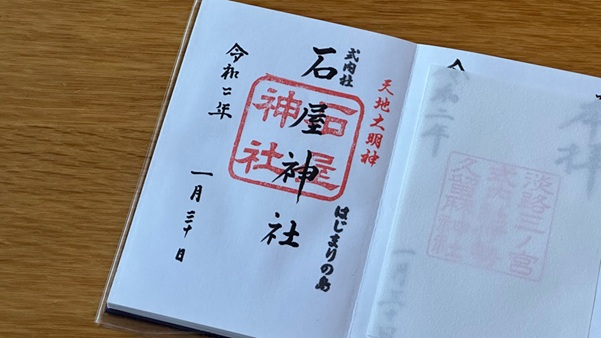 天地大明神
式内社
はじまりの島
石屋神社
石屋
神社
令和二年
一月三十日
淡路三ノ宮
久留麻神社
令和二年
一月三十日